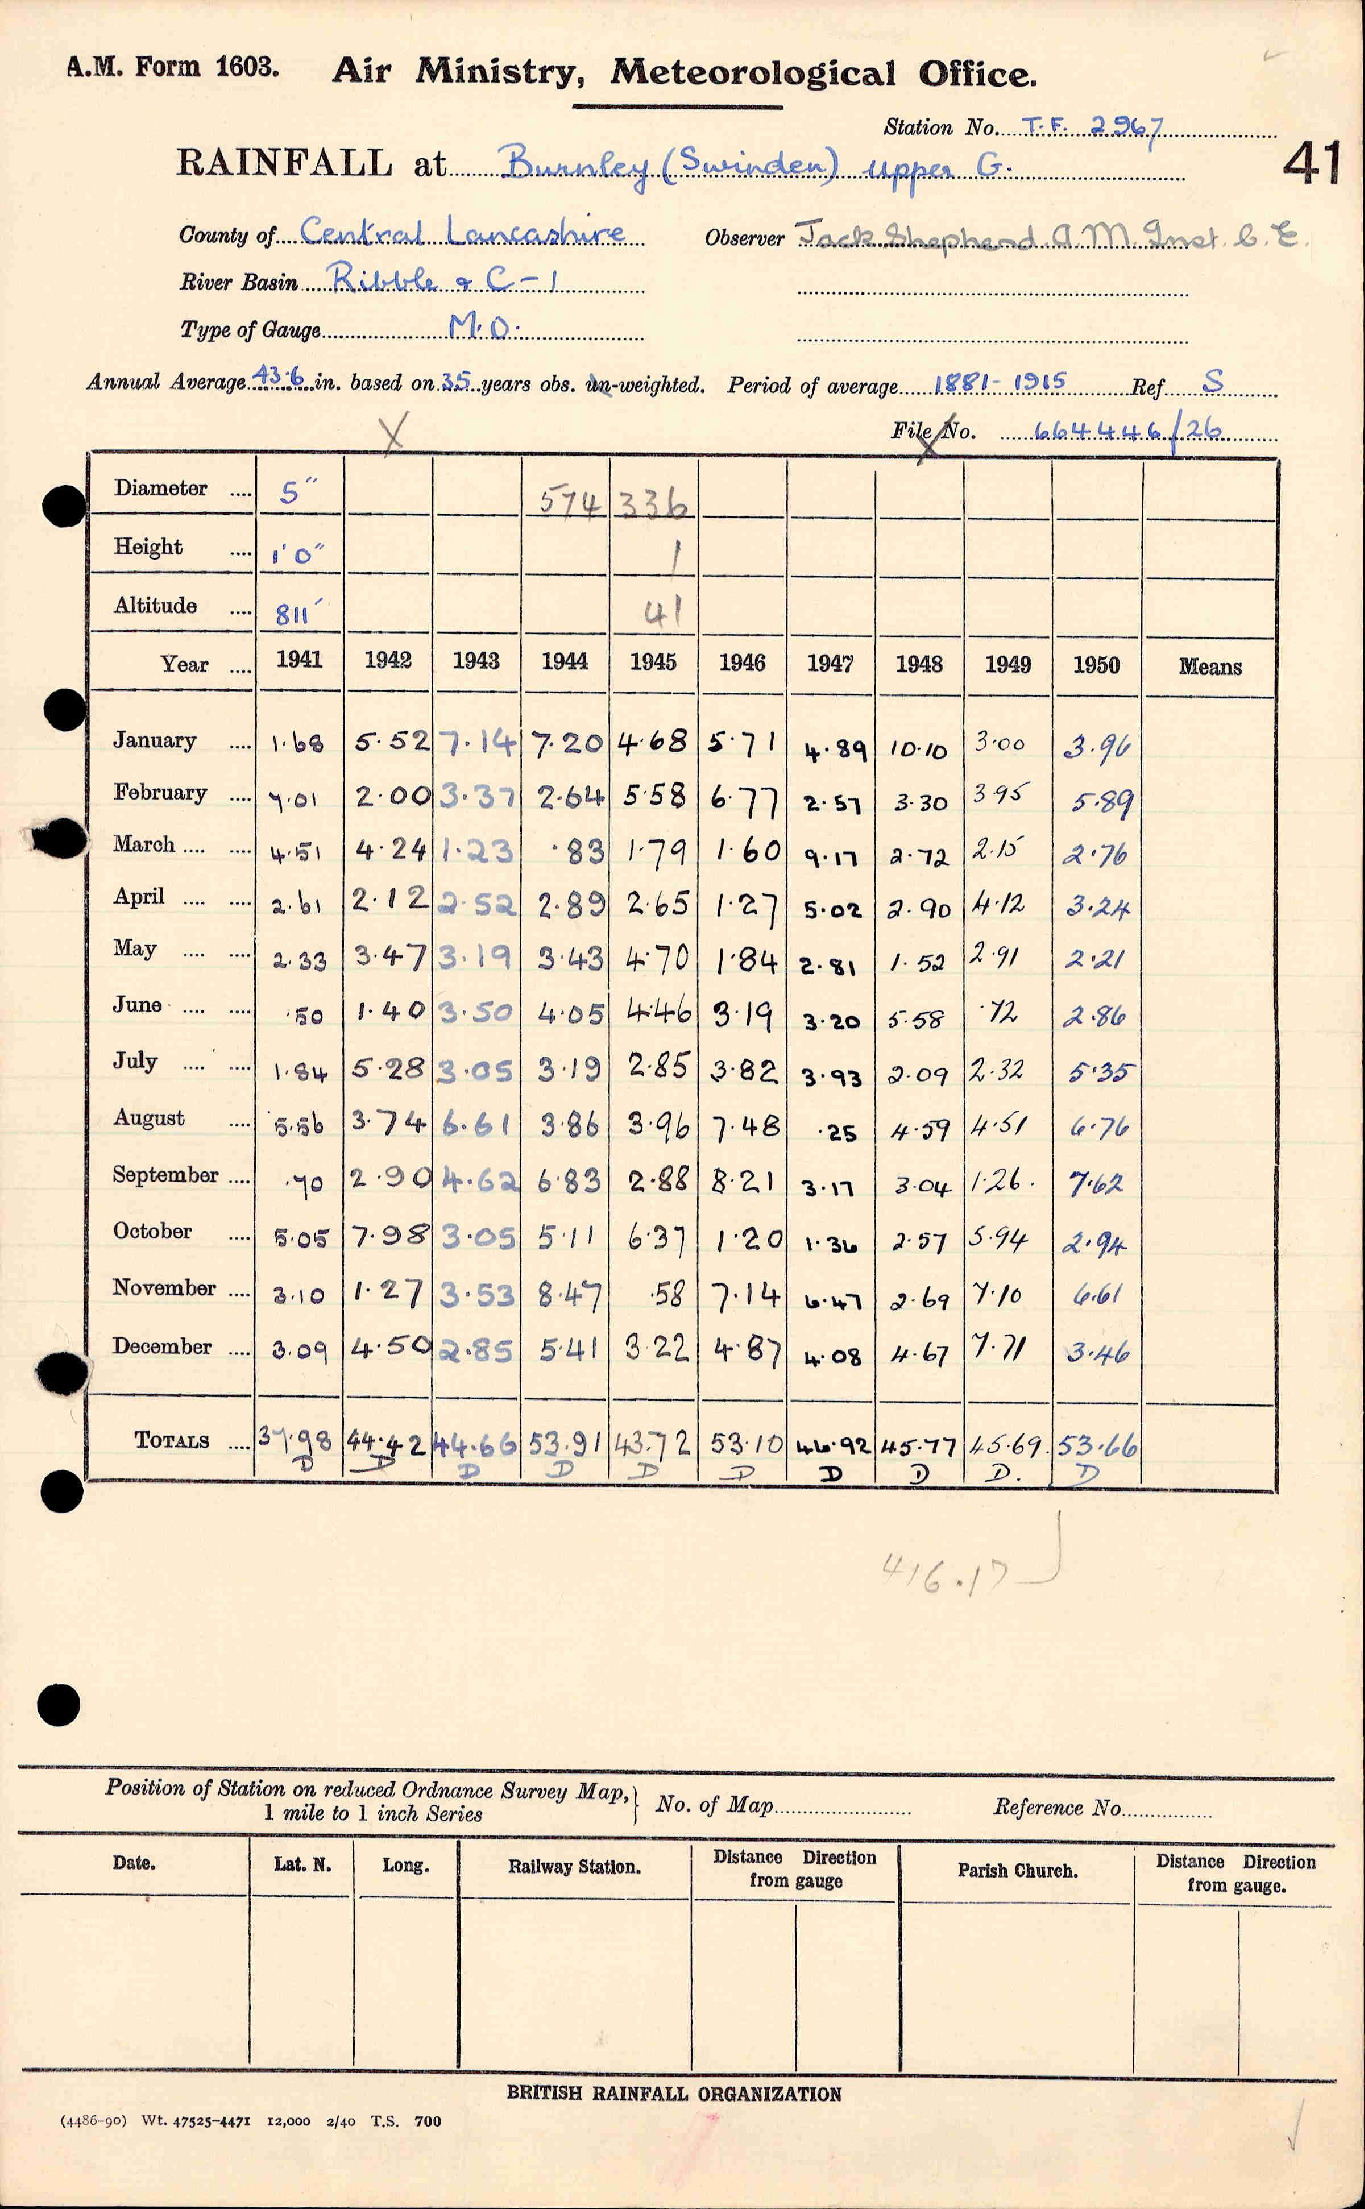 A.M. Form 1603. Air Ministry, Meteorological Office.
Station No. T.F. 2967
RAINFALL at Burnley (Swinden) Upper G. 41
County of Central Lancashire Observer Jack Shepherd A.M. Inst. C.E.
River Basin Ribble & C-1
Type of Gauge M.O.
Annual Average 43.6 in. based on 35 years obs. un-weighted. Period of average 1881-1915 Ref S
File No. 664446/26
Diameter .... 5" 574 336
Height .... 1'0" 1
Altitude .... 811' 41
Year .... 1941 1942 1943 1944 1945 1946 1947 1948 1949 1950 Means
January .... 1.68 5.52 7.14 7.20 4.68 5.71 4.89 10.10 3.00 3.96
February .... 7.01 2.00 3.37 2.64 5.58 6.77 2.57 3.30 3.95 5.89
March .... .... 4.51 4.24 1.23 .83 1.79 1.60 9.17 2.72 2.15 2.76
April .... .... 2.61 2.12 2.52 2.89 2.65 1.27 5.02 2.90 4.12 3.24
May .... .... 2.33 3.47 3.19 3.43 4.70 1.84 2.81 1.52 2.91 2.21
June .... .... .50 1.40 3.50 4.05 4.46 3.19 3.20 5.58 .72 2.86
July .... .... 1.84 5.28 3.05 3.19 2.85 3.82 3.93 2.09 2.32 5.35
August .... 5.56 3.74 6.61 3.86 3.96 7.48 .25 4.59 4.51 6.76
September .... .70 2.90 4.62 6.83 2.88 8.21 3.17 3.04 1.26 7.62
October .... 5.05 7.98 3.05 5.11 6.37 1.20 1.36 2.57 5.94 2.94
November .... 3.10 1.27 3.53 8.47 .58 7.14 6.47 2.69 7.10 6.61
December .... 3.09 4.50 2.85 5.41 3.22 4.87 4.08 4.67 7.71 3.46
TOTALS .... 37.98 44.42 44.66 53.91 43.72 53.10 46.92 45.77 45.69 53.66
D D D D D D D D D. D
416.17
Position of Station on reduced Ordnance Survey Map,} No. of Map Reference No.
1 mile to 1 inch Series
Date. Lat. N. Long. Railway Station. Distance Direction Parish Church. Distance Direction
from gauge from gauge.
BRITISH RAINFALL ORGANIZATION
(4486-90) Wt. 47525-4471 12,000 2/40 T.S. 700